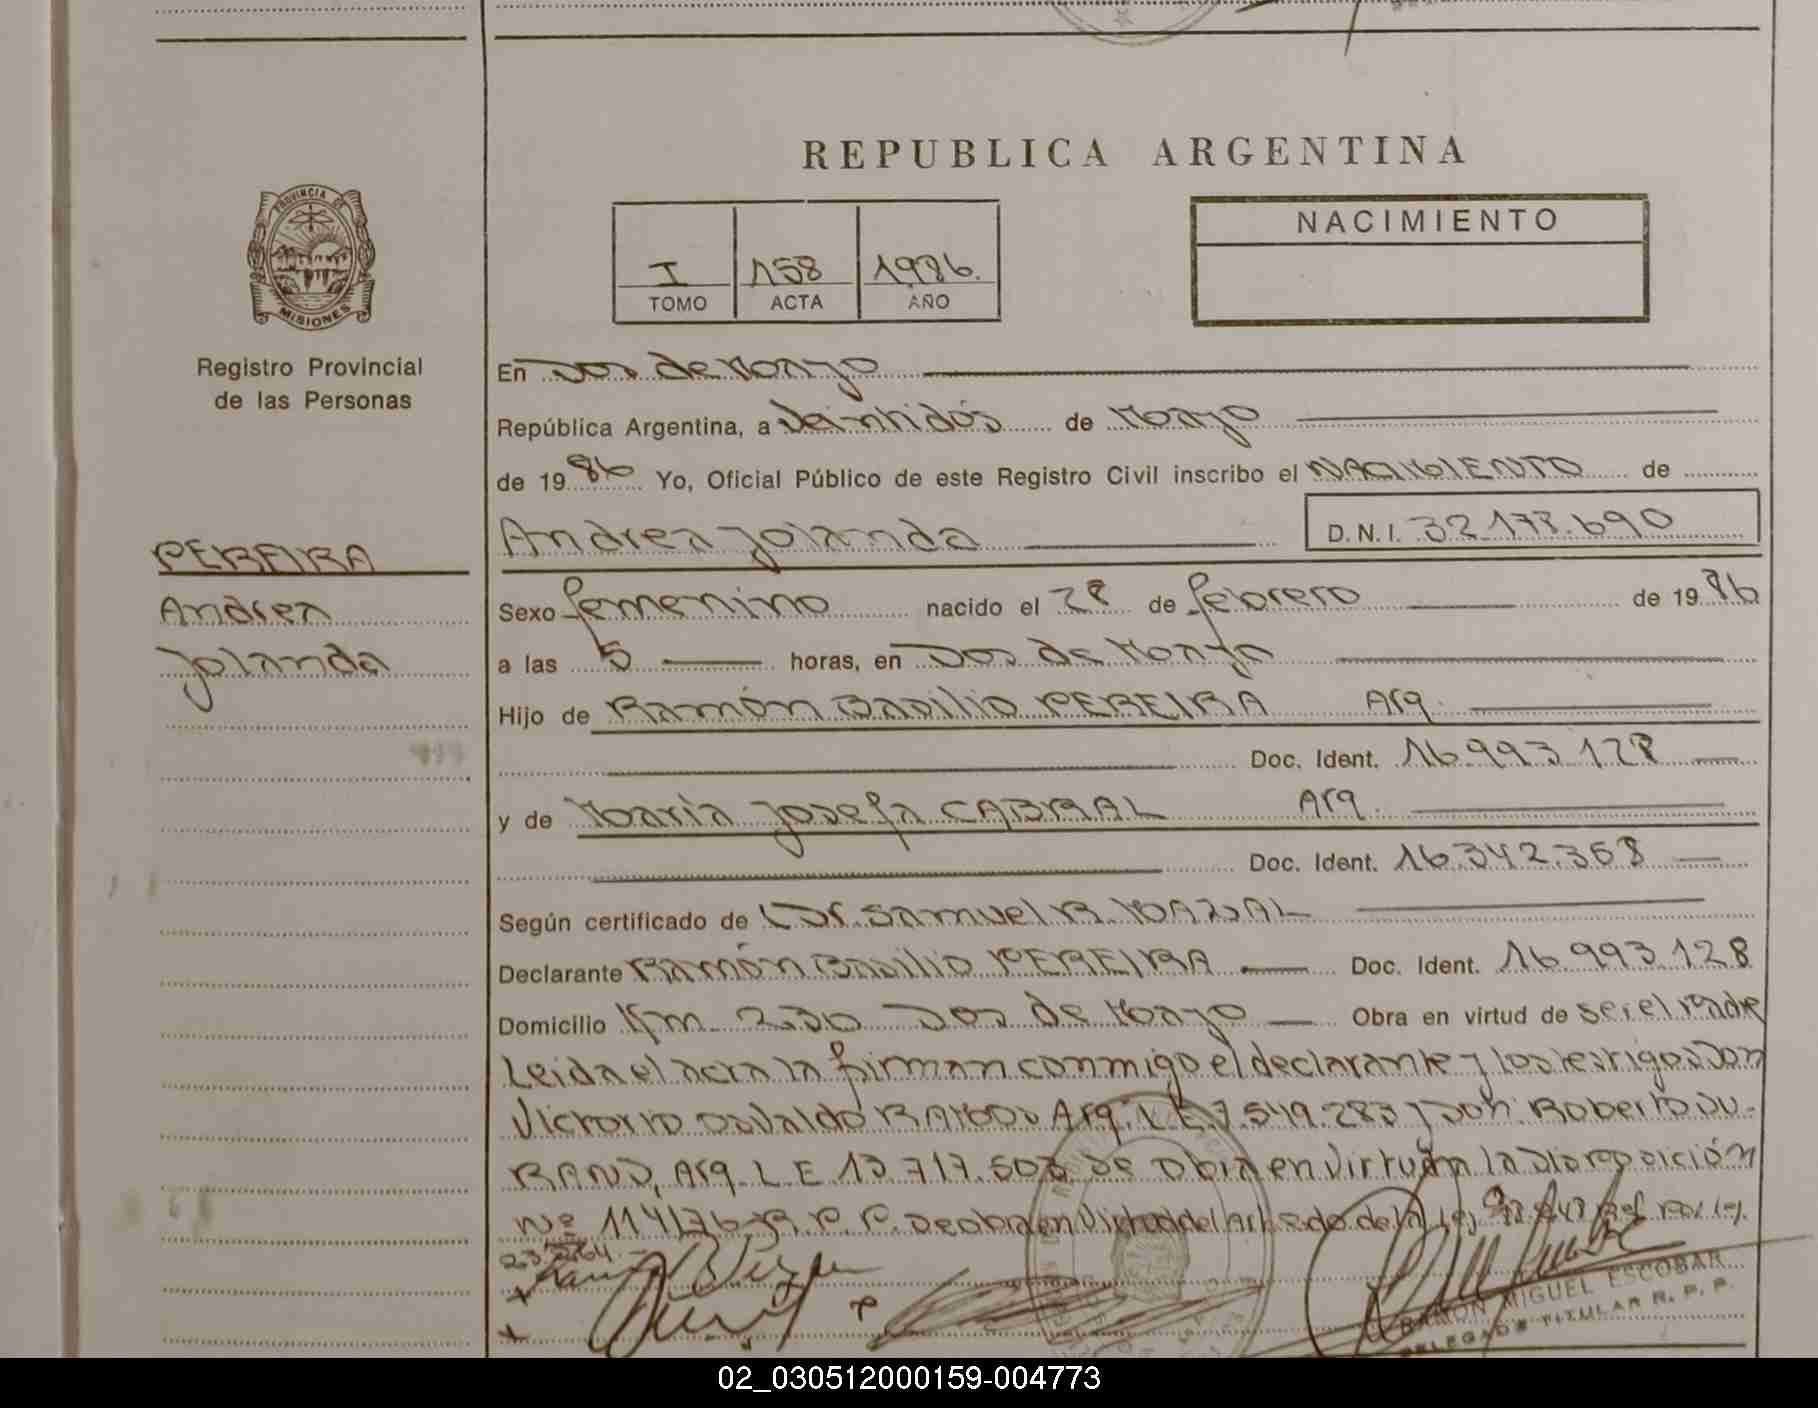 REPUBLICA ARGENTINA
PROVINCIA DE
MISIONES
Registro Provincial
de las Personas
I 158 1986.
TOMO ACTA AÑO
NACIMIENTO
En Dos de Mayo
República Argentina, a Veintidós de Mayo
de 19 86 Yo, Oficial Público de este Registro Civil inscribo el NACIMIENTO de
PEREIRA
Andrea
Yolanda
Andrea Yolanda D.N.I. 32.178.690
Sexo femenino nacido el 28 de febrero de 19 86
a las 5 horas, en Dos de Mayo
Hijo de Ramón Basilio PEREIRA Arg.
Doc. Ident. 16.993.128
y de María Josefa CABRAL Arg.
Doc. Ident. 16.342.368
Según certificado de Dr. Samuel R.
Declarante Ramón Basilio PEREIRA Doc. Ident. 16.993.128
Domicilio Km. 230 Dos de Mayo Obra en virtud de ser el Padre
Leida el acta la firman conmigo el declarante y los testigos Don
Victorio Osvaldo RAMOS Arg. L.E. 7.549.283 y Don: Roberto DU-
RAND, Arg. L.E. 13.717.503 Se Obra en Virtud a la Disposición
Nº 114/76-R.P.P. Se obra en Virtud del Art. de la Ley
RAMON MIGUEL ESCOBAR
DELEGADO TITULAR R.P.P.
02_030512000159-004773